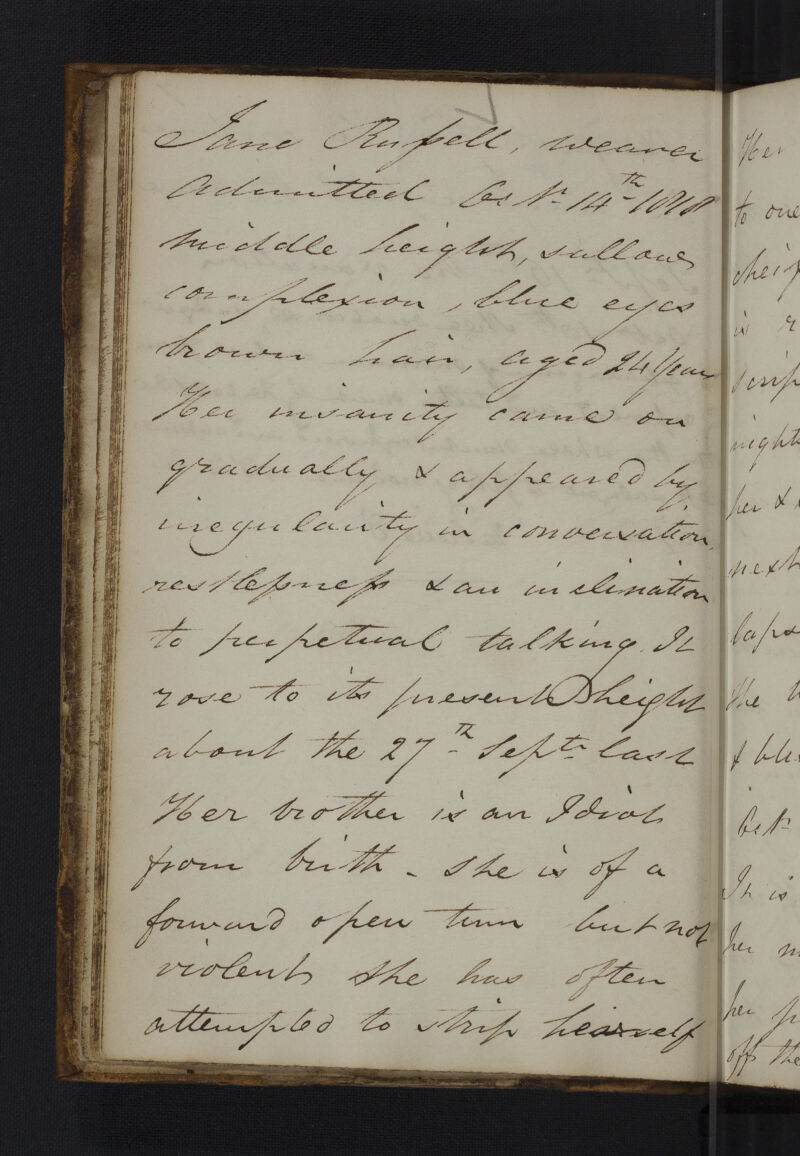 Jane Russell, weaver
Admitted Octr. 14th 1818
middle height, sallow
complexion, blue eyes
brown hair, aged 24 Years
Her insanity came on
gradually & appeared by
irregularity in conversation,
restlessness & an inclination
to perpetual talking. It
rose to its present height
about the 27th Septr. last
Her brother is an Idiot
from birth - She is of a
forward open turn but not
violent She has often
attempted to strip herself
Her
to one
is
night
her &
next
laps
the
&
Octr.
It is
her
her
off the